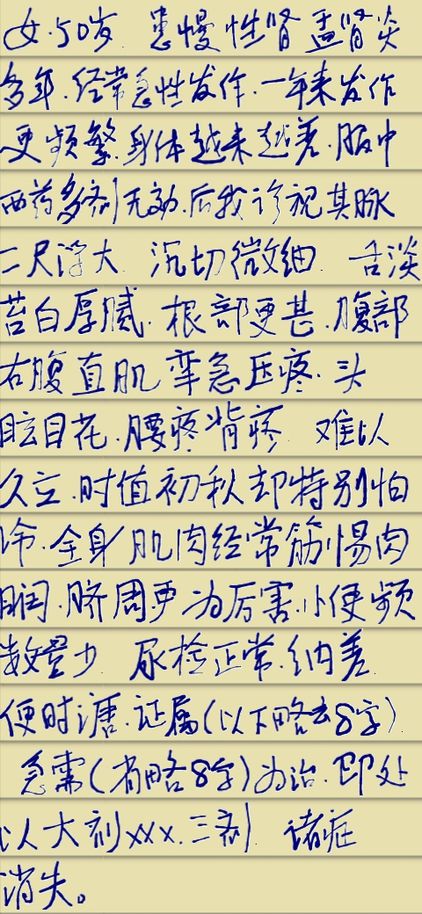 女.50岁. 患慢性肾盂肾炎
多年.经常急性发作.一年来发作
更频繁.身体越来越差.服中
西药多剂无效.后我诊视其脉
二尺浮大. 沉切微细. 舌淡
苔白厚腻.根部更甚.腹部
右腹直肌挛急压疼.头
眩目花.腰疼背疼 难以
久立.时值初秋却特别怕
冷.全身肌肉经常筋惕肉
瞤.脐周更为厉害.小便频
数量少. 尿检正常.纳差
便时溏.证属(以下略去8字)
急需(省略8字)为治.即处
以大剂xxx.三剂. 诸症
消失。